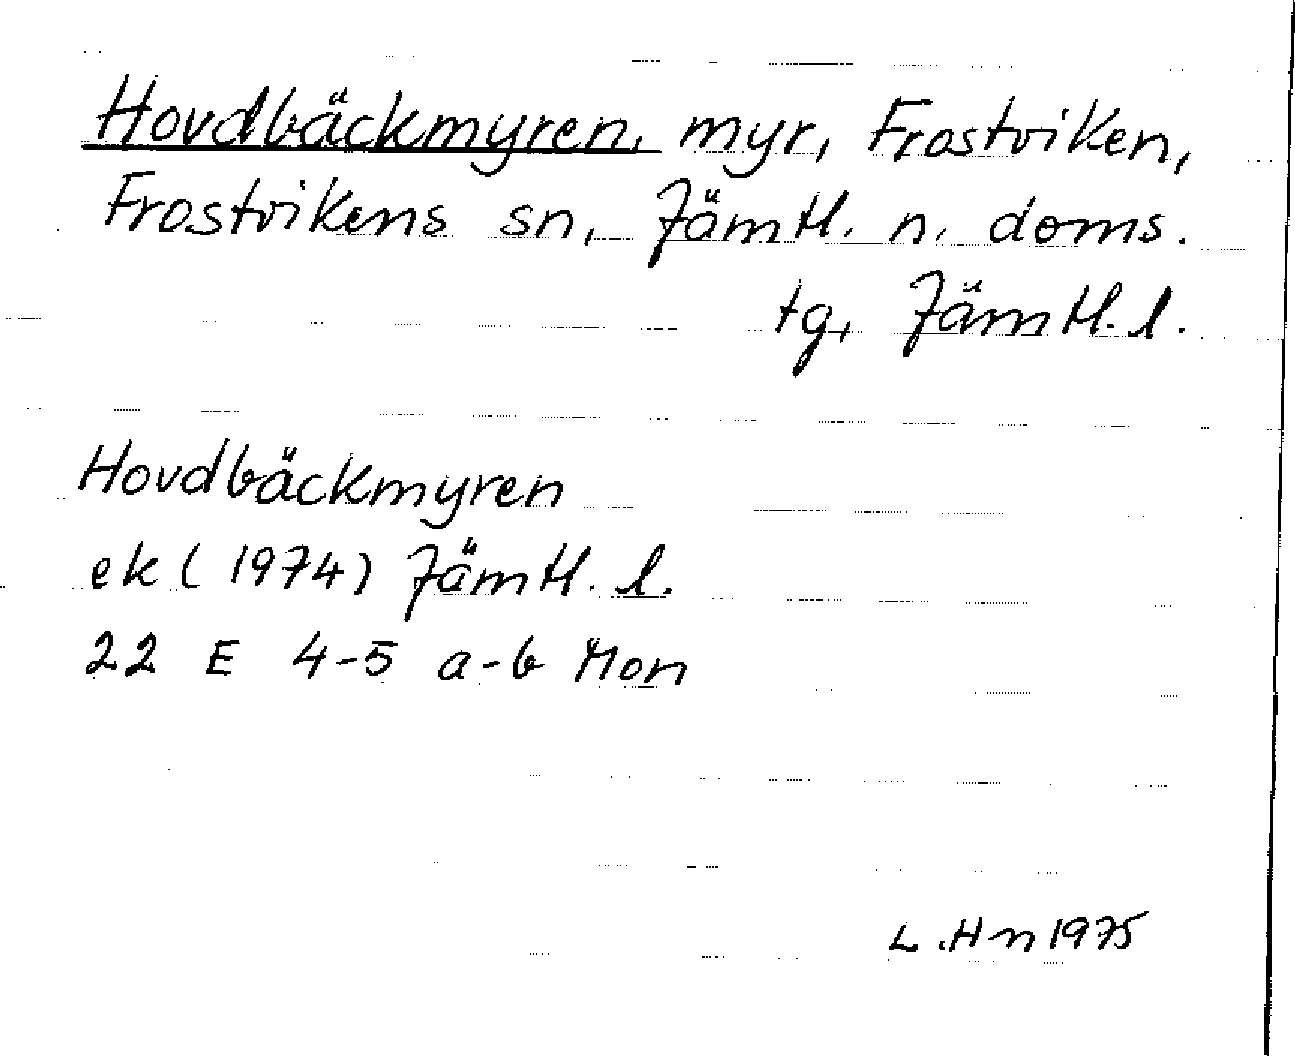 Hovdbäckmyren, myr, Frostviken,
Frostvikens sn, Jämtl. n. doms.
tg, Jämtl. l.
Hovdbäckmyren
ek (1974) Jämtl. l.
22 E 4-5 a-b Mon
L. Hn 1975